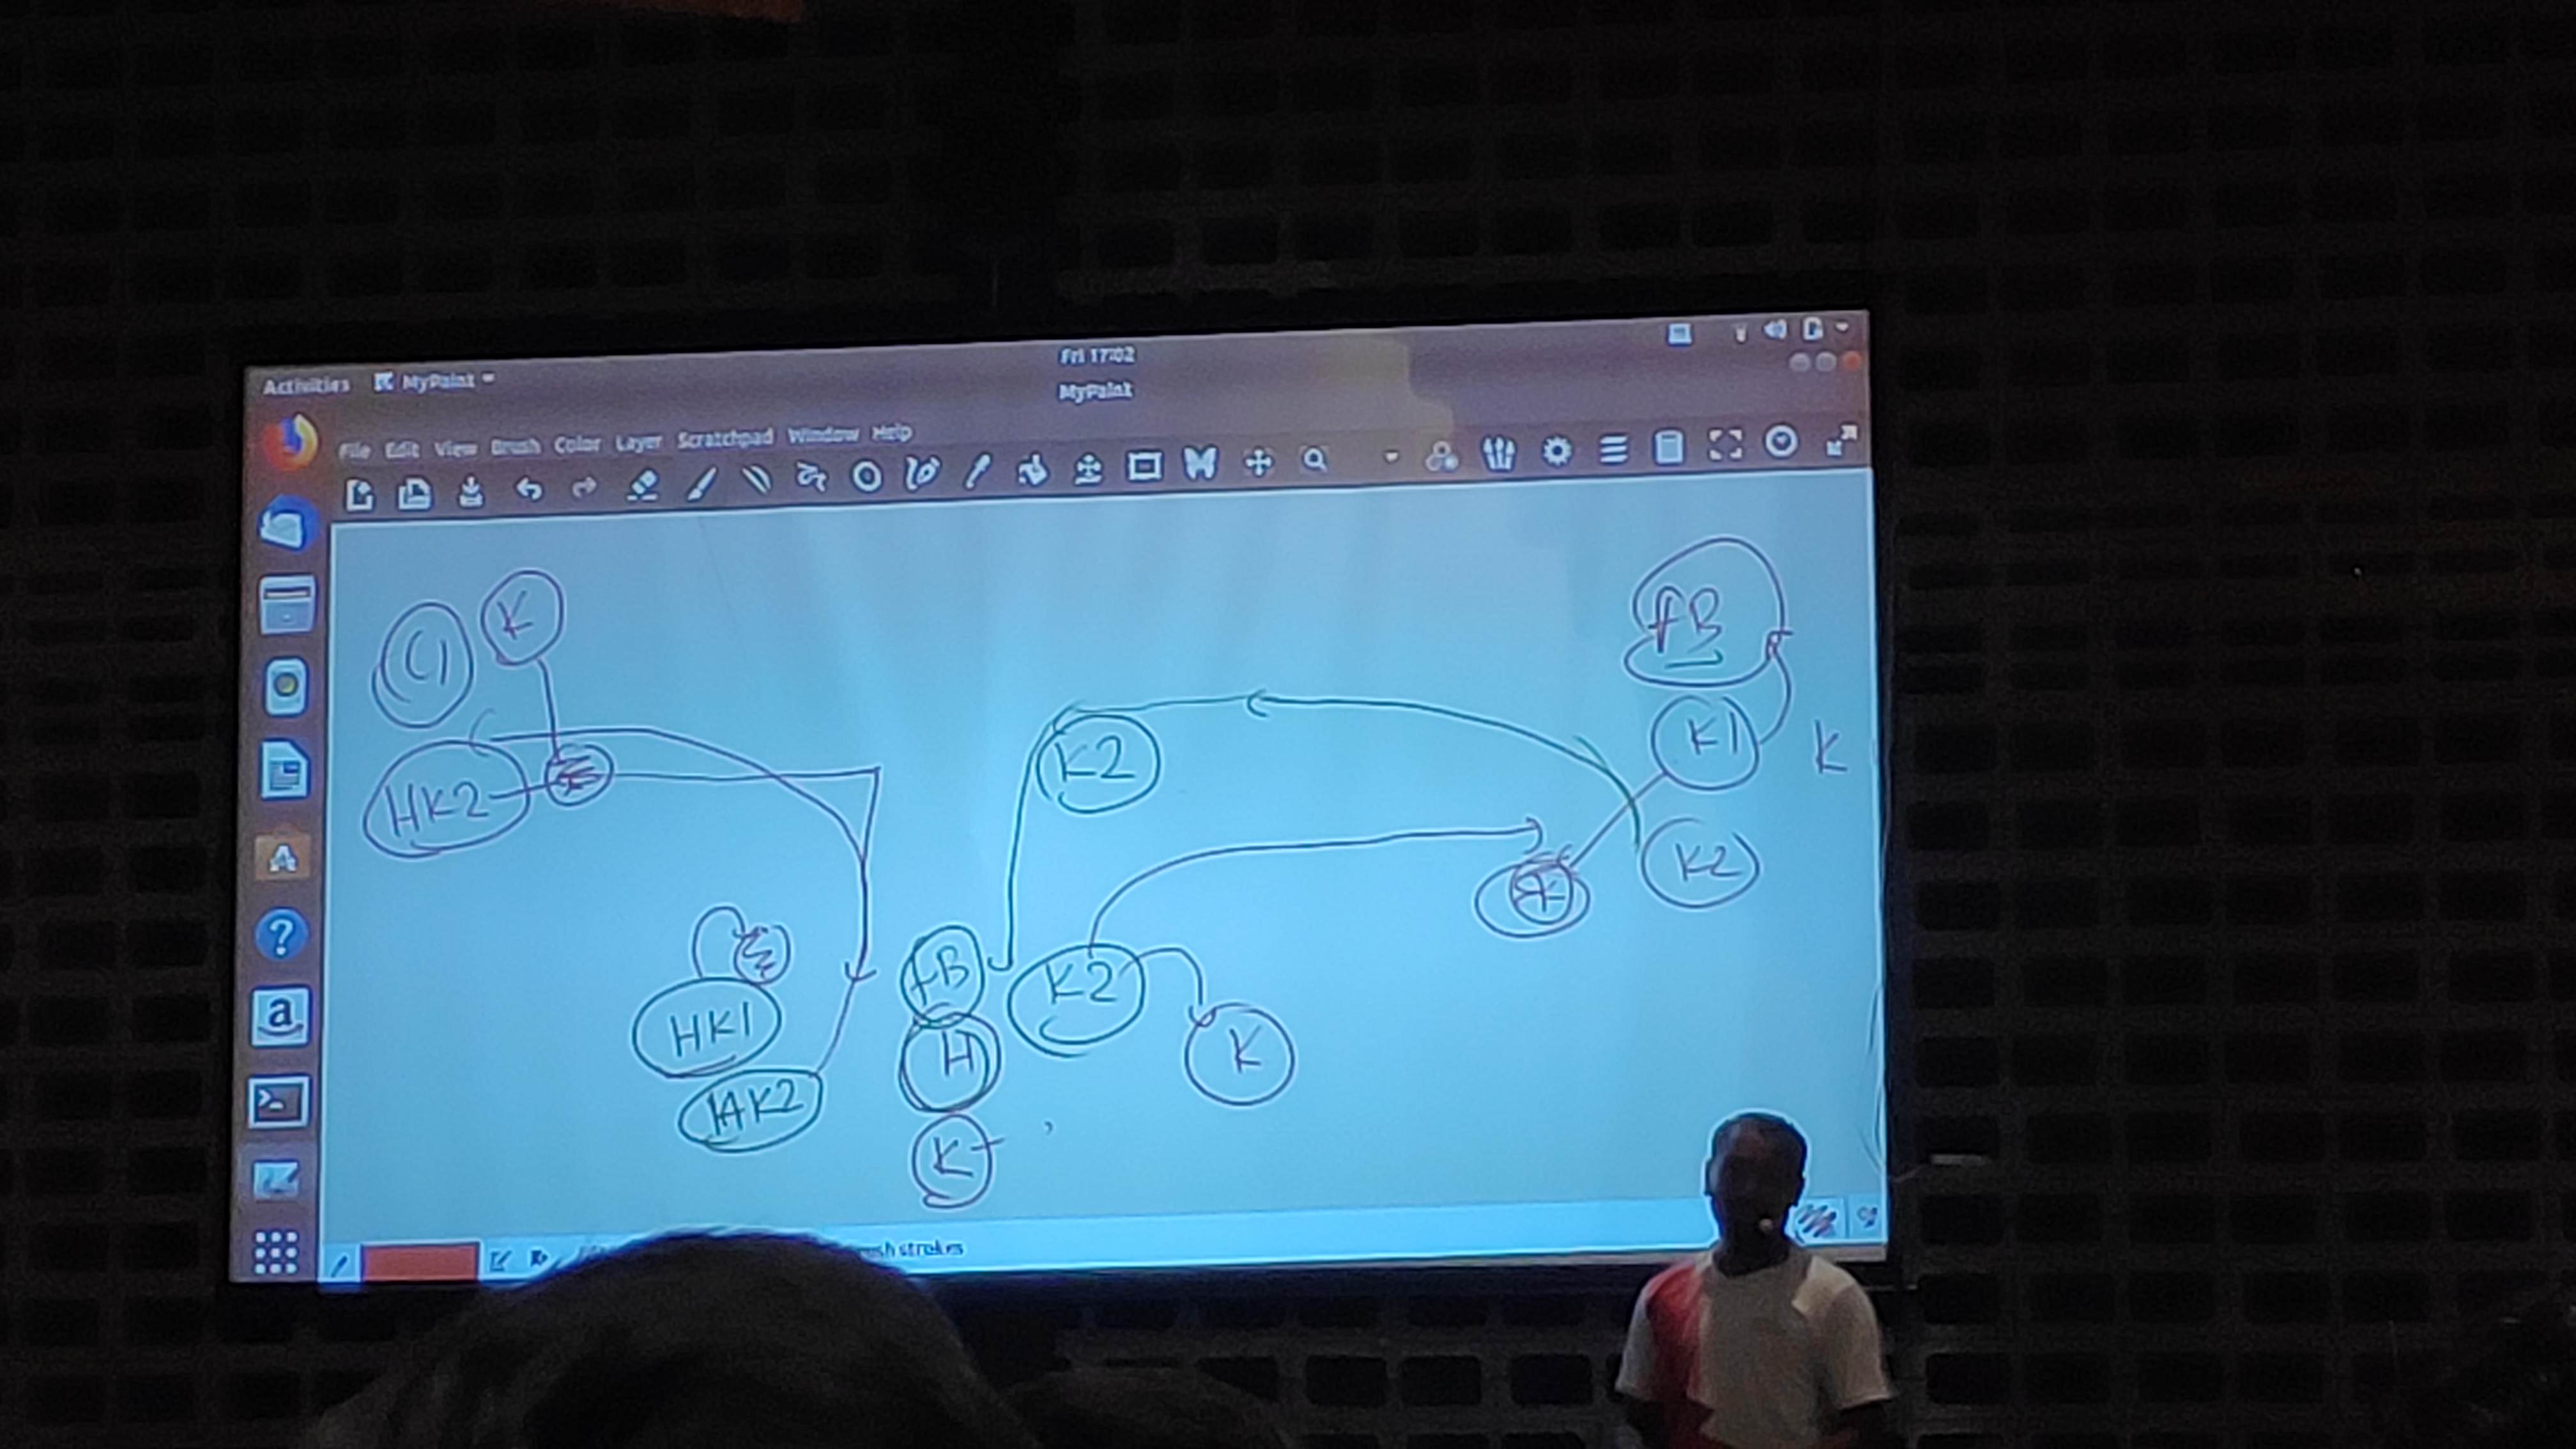 Fri 17:02
Activities MyPaint
MyPaint
File Edit View Brush Color Layer Scratchpad Window Help
C1
K
HK2
K2
fB
K1
K
K2
K
HK1
HK2
fB
H
K
K2
K
A
?
a
>_
brush strokes